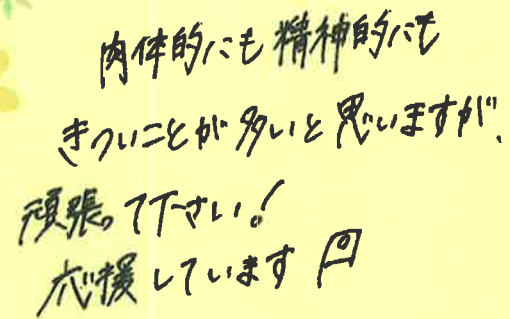 肉体的にも精神的にも
きついことが多いと思いますが、
頑張って下さい!
応援しています